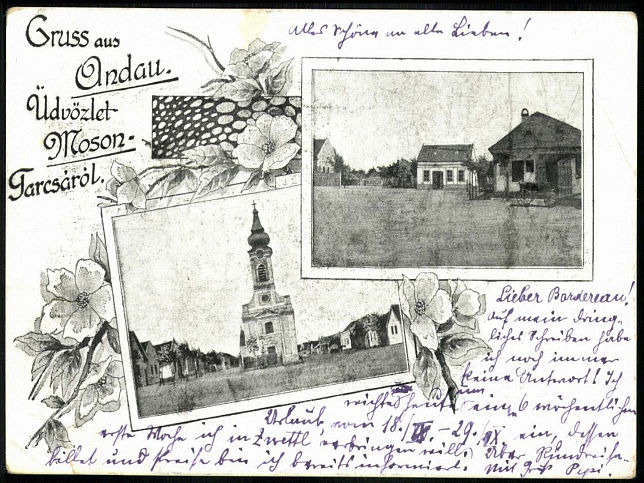 Gruss aus
Andau.
Üdvözlet
Moson-
Tarcsáról.
Alles Schöne an alle Lieben!
Lieber Bordereau!
Auf mein dring-
liches Schreiben habe
ich noch immer
keine Antwort! Ich
heute um eine 6 wöchentlichen
Urlaub vom 18./IX.-29./IX ein, dessen
erste Woche ich in Zwettl verbringen will. Über Rundreise-
billet und Preise bin ich bereits informiert. Mit Gruß Pepi.